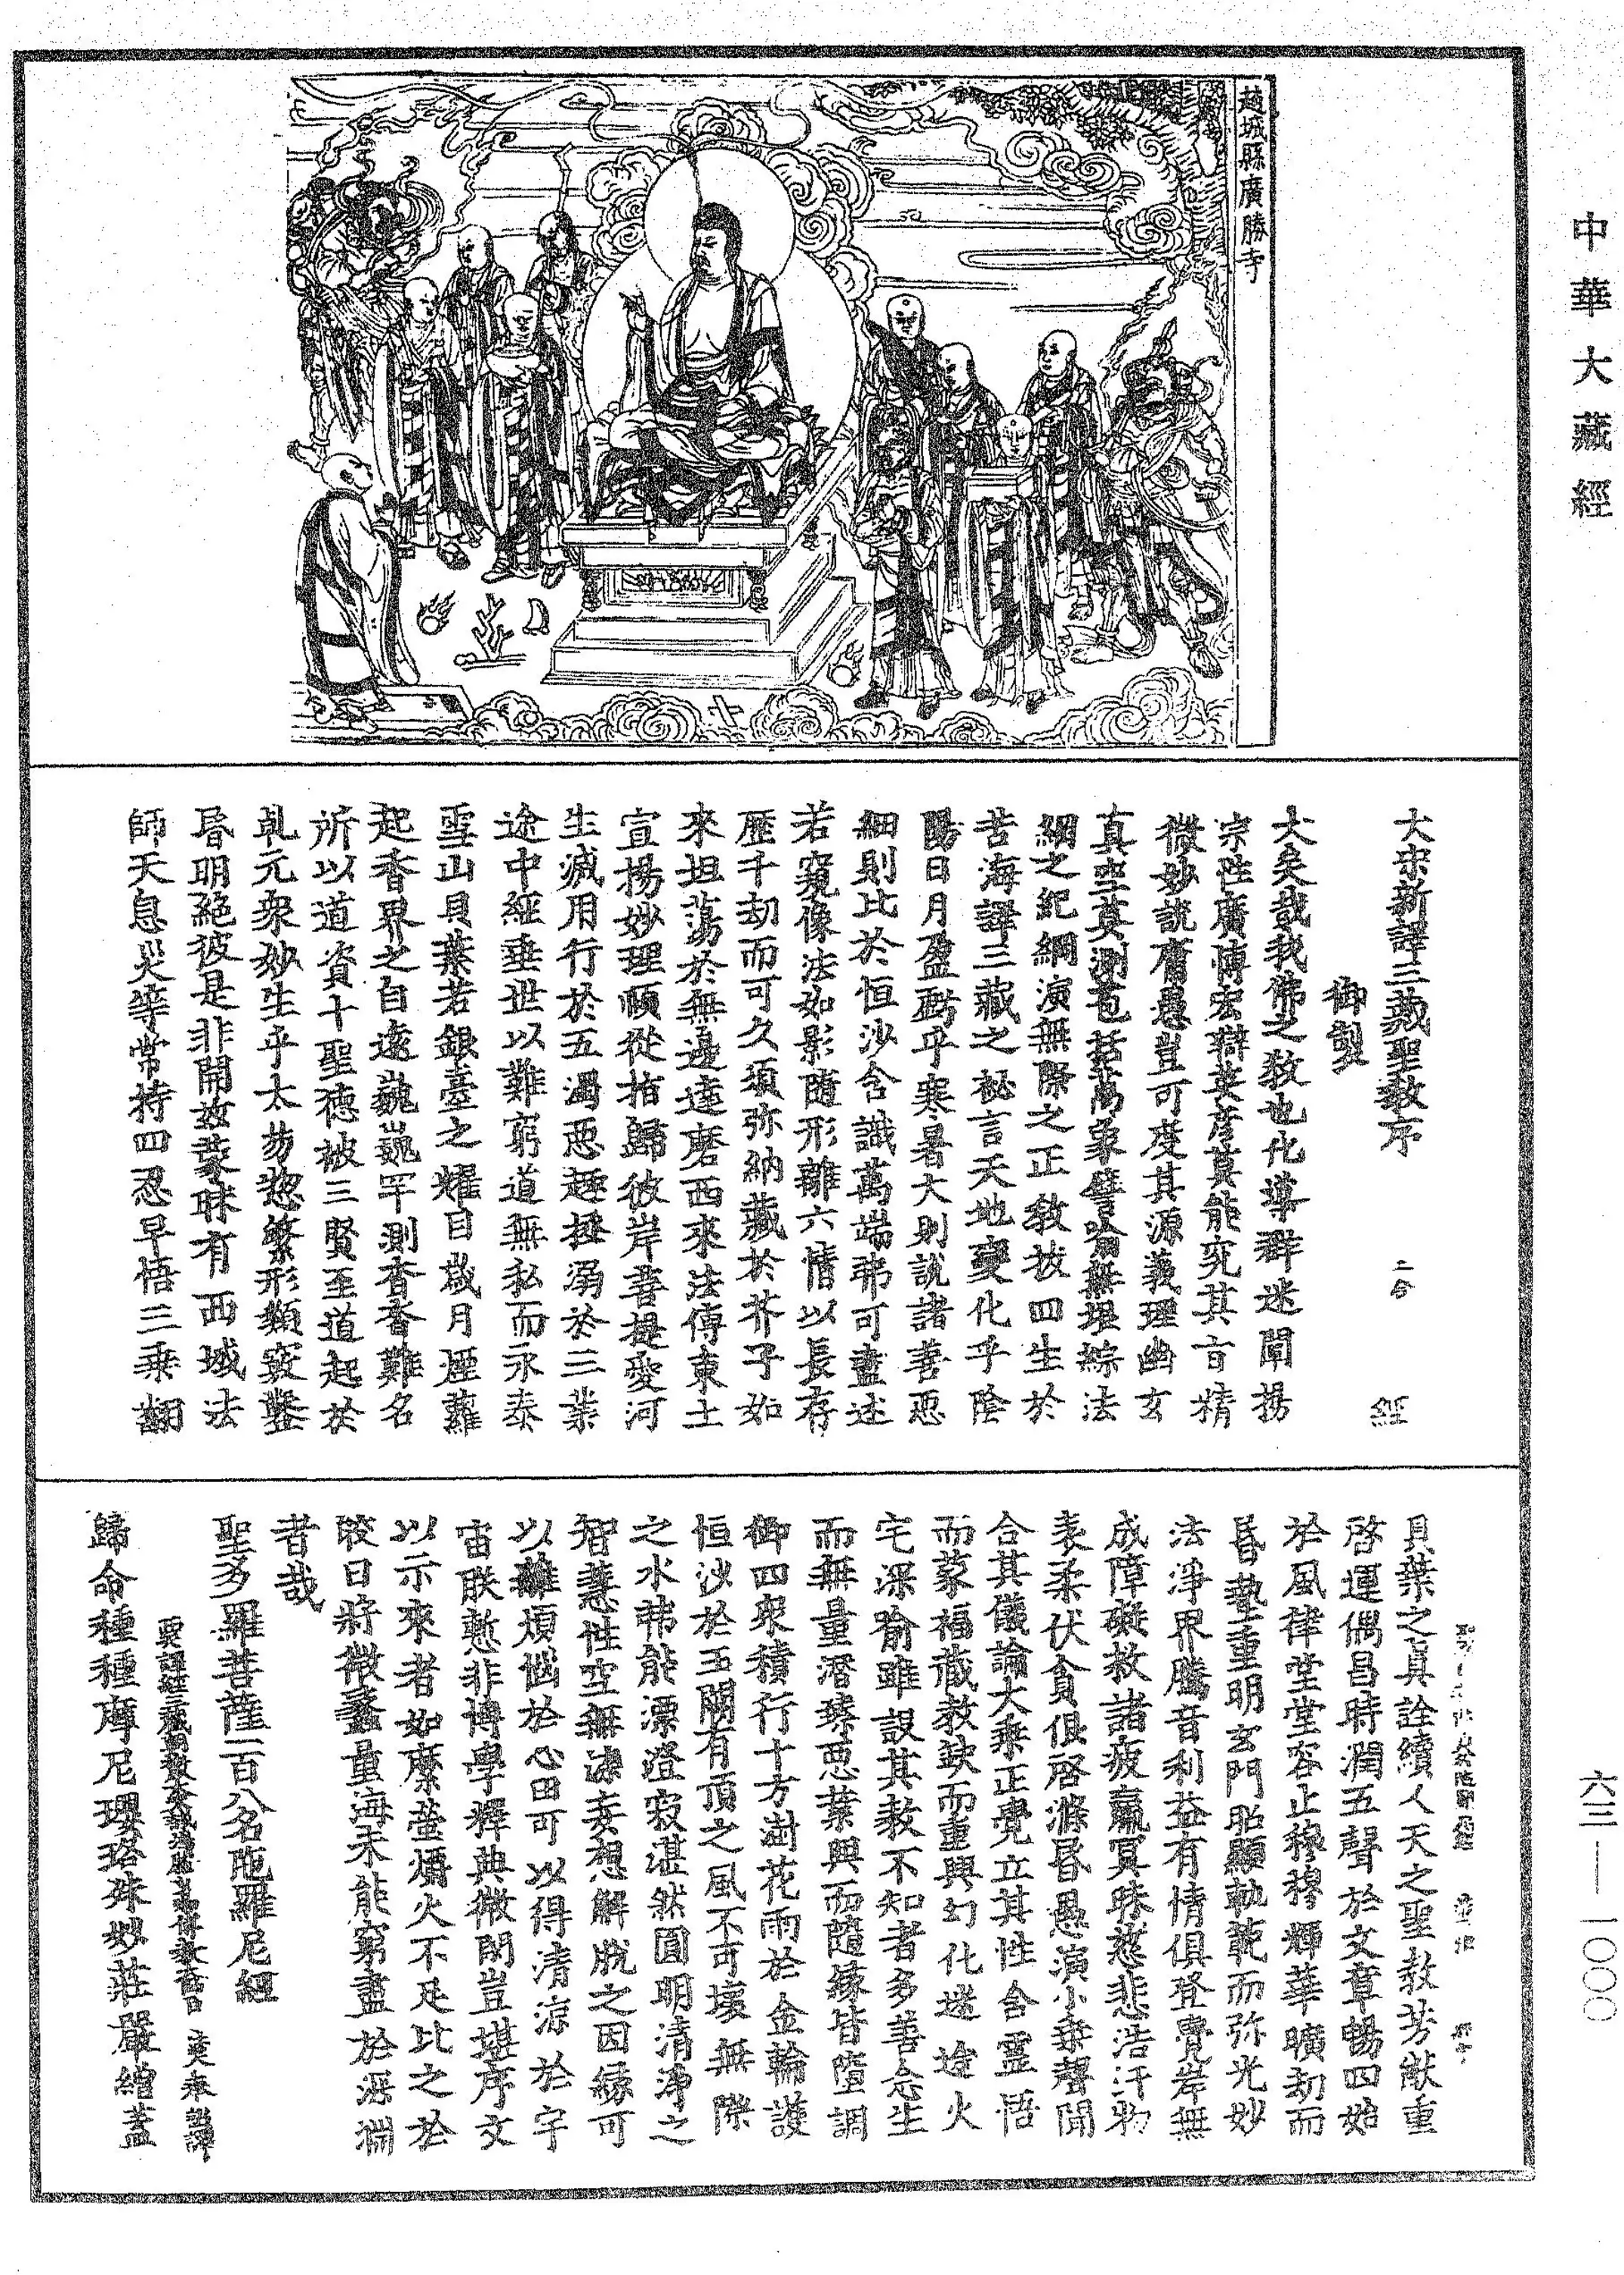 中華大藏經
趙城縣廣勝寺
大宋新譯三藏聖教序 二 經
御製
大矣哉我佛之教也化導群迷闡揚
宗性廣博宏辯英彥莫能究其旨精
微妙說庸愚豈可度其源義理幽玄
真空莫測包括萬象譬喻無垠綜法
網之紀綱演無際之正教拔四生於
苦海譯三藏之祕言天地變化乎陰
陽日月盈虧乎寒暑大則說諸善惡
細則比於恒沙含識萬端弗可盡述
若窺像法如影隨形離六情以長存
歷千劫而可久須弥納藏於芥子如
來坦蕩於無邊達磨西來法傳東土
宣揚妙理順從指歸彼岸菩提愛河
生滅用行於五濁惡趣拯溺於三業
途中經垂世以難窮道無私而永泰
雪山貝葉若銀臺之耀目歲月煙蘿
起香界之自遠巍巍罕測杳杳難名
所以道資十聖德被三賢至道起於
乹元衆妙生乎太易惣繁形類竅鑿
昏明絕彼是非開茲蒙昧有西域法
師天息災等常持四忍早悟三乘翻
貝葉之真詮續人天之聖教芳猷重
啓運偶昌時潤五聲於文章暢四始
於風律堂堂容止穆穆輝華曠劫而
昏蟄重明玄門昭顯軌範而弥光妙
法淨界騰音利益有情俱登覺岸無
成障礙救諸疲羸冥昧慈悲浩汗物
表柔伏貪俱啓滌昏愚演小乘聲聞
合其儀論大乘正覺立其性含靈悟
而蒙福藏教缺而重興幻化迷途火
宅深喻雖設其教不知者多善念生
而無量潛臻惡業興而隨緣皆墮調
御四衆積行十方澍花雨於金輪護
恒沙於玉闕有頂之風不可壞無際
之水弗能漂澄寂湛然圓明清淨之
智慧性空無染妄想解脫之因緣可
以離煩惱於心田可以得清涼於宇
宙朕慙非博學釋典微閑豈堪序文
以示來者如縻螢爝火不足比之於
皎日將微蠡量海未能窮盡於深淵
者哉
聖多羅菩薩一百八名陁羅尼經
西天譯經三藏朝散大夫試鴻臚少卿傳教大師臣法天奉詔譯
歸命種種摩尼瓔珞殊妙莊嚴繒蓋
六三—一〇〇〇